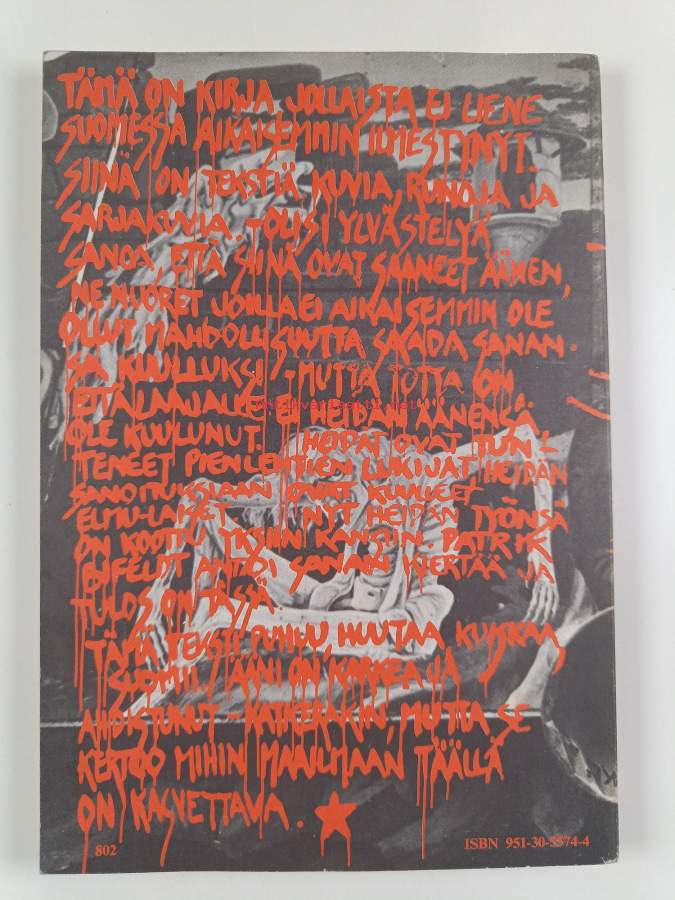 TÄMÄ ON KIRJA JOLLAISTA EI LIENE
SUOMESSA AIKAISEMMIN ILMESTYNYT.
SIINÄ ON TEKSTIÄ, KUVIA, RUNOJA JA
SARJAKUVIA. OLISI YLVÄSTELYÄ
SANOA, ETTÄ SIINÄ OVAT SAANEET ÄÄNEN,
NE NUORET JOILLA EI AIKAISEMMIN OLE
OLLUT MAHDOLLISUUTTA SAADA SANAN-
SA KUULLUKSI - MUTTA TOTTA ON,
ETTÄ LAAJALKE EI HEIDÄN ÄÄNENSÄ
OLE KUULUNUT. HEIDÄT OVAT TUN-
TENEET PIENLEHTIEN LUKIJAT HEIDÄN
SANOITUKSIAAN OVAT KUULLEET
ELMU-LAISET NYT HEIDÄN TYÖNSÄ
ON KOOTTU YKSIIN KANSIIN. PATRIK
ANTOI SANAN KIERTÄÄ JA
TULOS ON TÄSSÄ.
TÄMÄ TEKSTI PUHUU, HUUTAA KUISKAA,
ÄÄNI ON KARKEA JA
AHDISTUNUT - KATKERAKIN, MUTTA SE
KERTOO MIHIN MAAILMAAN TÄÄLLÄ
ON KASVETTAVA.
802
ISBN 951-30-5574-4